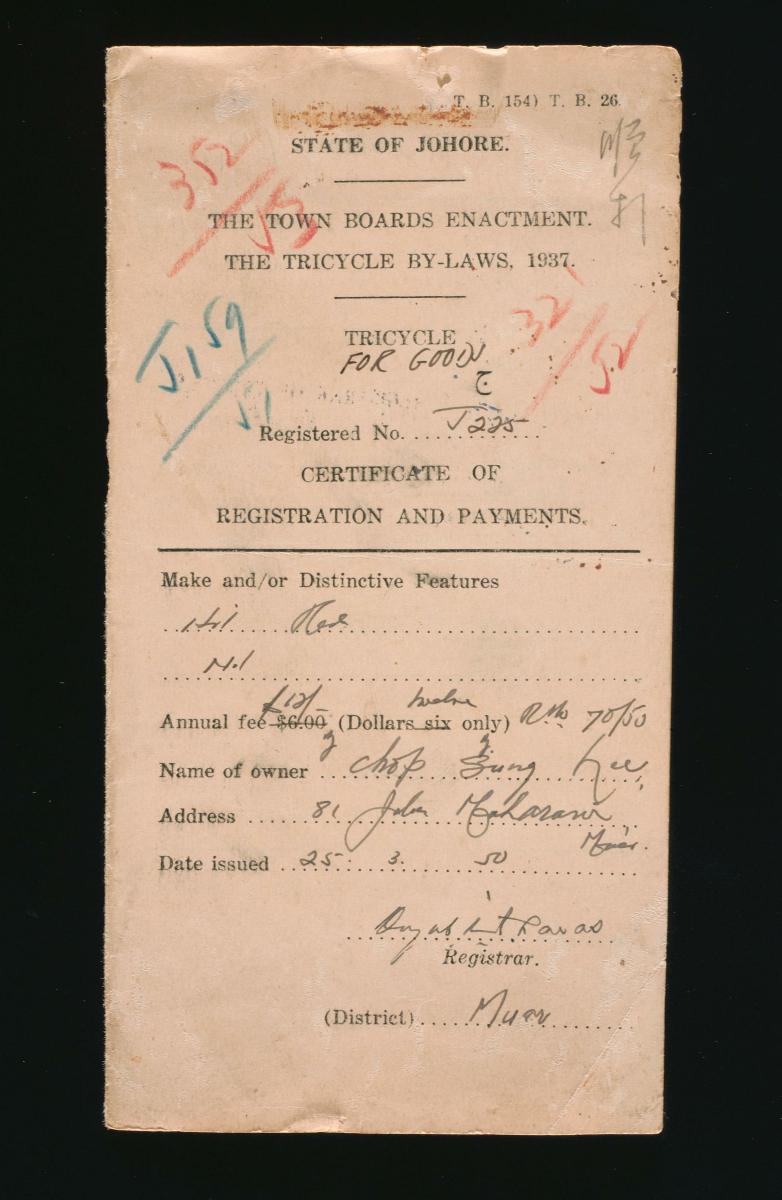 T. B. 154) T. B. 26.
STATE OF JOHORE.
352
53
THE TOWN BOARDS ENACTMENT.
THE TRICYCLE BY-LAWS, 1937.
J159
51
32
52
TRICYCLE
FOR GOODS
ج
Registered No. J225
CERTIFICATE OF
REGISTRATION AND PAYMENTS.
Make and/or Distinctive Features
Nil
$12/- twelve
Annual fee $6.00 (Dollars six only) 70/50
Name of owner Chop Sung Lee
Address 81 Jalan Maharani
Muar.
Date issued 25. 3. 50
Registrar.
(District) Muar